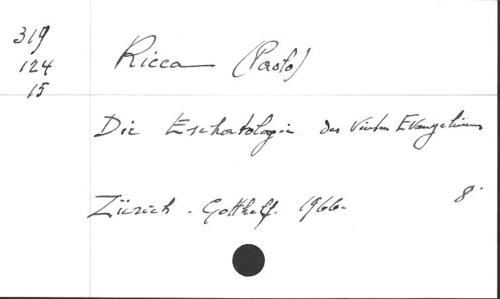 319
124
15
Ricca (Paolo)
Die Eschatologie des Vierten Evangeliums
Zürich - Gotthelf. 1966.
8°